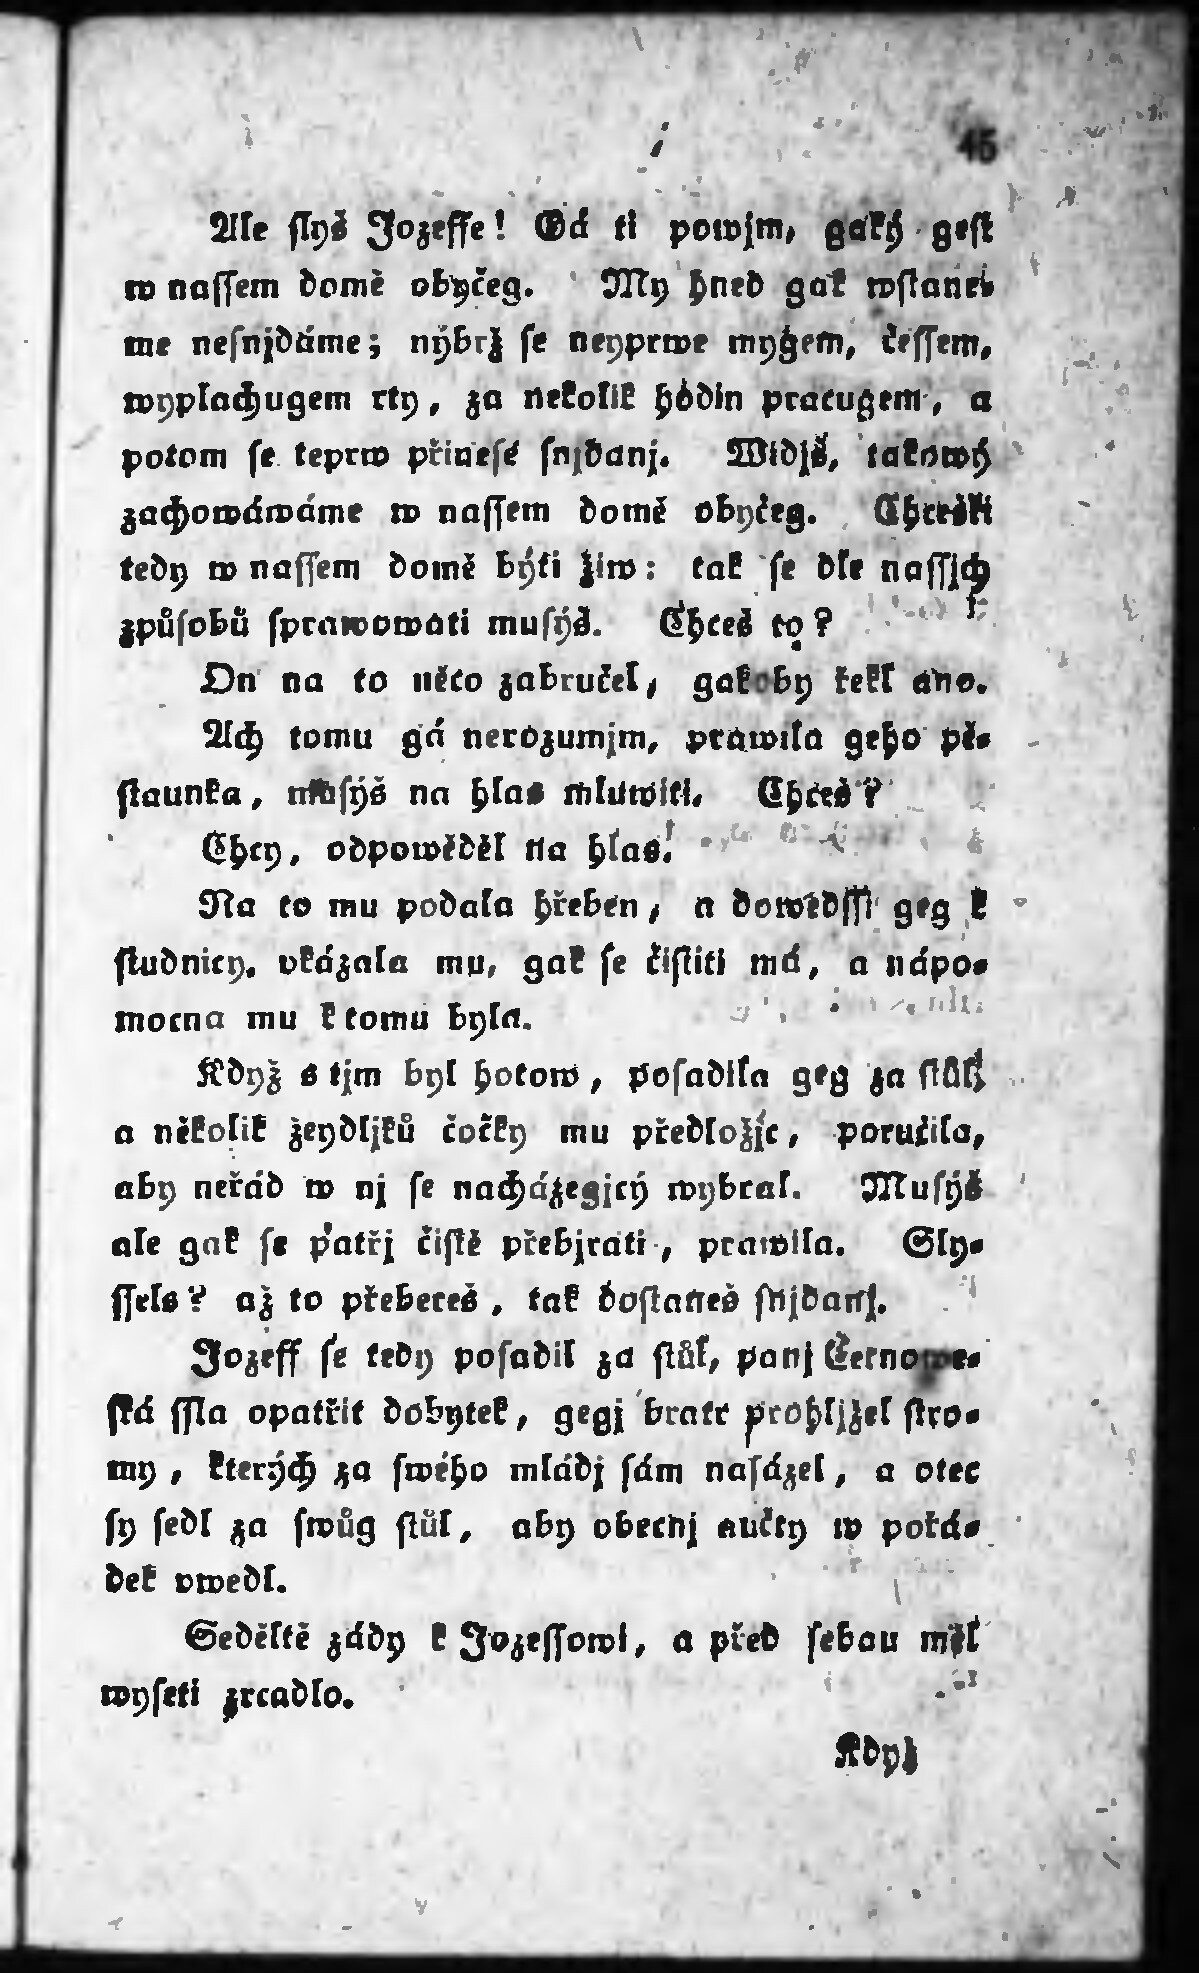 45
Ale slyš Jozeffe! Gá ti powjm, gaký gest
w nassem domě obyčeg. My hned gak wstane-
me nesnjdáme; nýbrž se neyprwe mygem, čessem,
wyplachugem rty, za nekolik hodin pracugem, a
potom se teprw přinesé snjdanj. Widjš, takowý
zachowáwáme w nassem domě obyčeg. Chcešli
tedy w nassem domě býti žiw: tak se dle nassjch
způsobů sprawowati musýš. Chceš to?
On na to něco zabručel, gakoby řekl ano.
Ach tomu gá nerozumjm, prawila geho pě-
staunka, musýš na hlas mluwiti. Chceš?
Chcy, odpowěděl na hlas.
Na to mu podala hřeben, a dowedssi geg k
studnicy, vkázala mu, gak se čistiti má, a nápo-
mocna mu k tomu byla.
Když s tjm byl hotow, posadila geg za stůl,
a několik žeydljků čočky mu předložjc, poručila,
aby neřád w nj se nacházegjcý wybral. Musýš
ale gak se patřj čistě přebjrati, prawila. Sly-
ssels? až to přebereš, tak dostaneš snjdanj.
Jozeff se tedy posadil za stůl, panj Černowe-
ská ssla opatřit dobytek, gegj bratr prohljžel stro-
my, kterých za swého mládj sám nasázel, a otec
sy sedl za swůg stůl, aby obecnj aučty w pořá-
dek vwedl.
Seděltě zády k Jozeffowi, a před sebau měl
wyseti zrcadlo.
Když